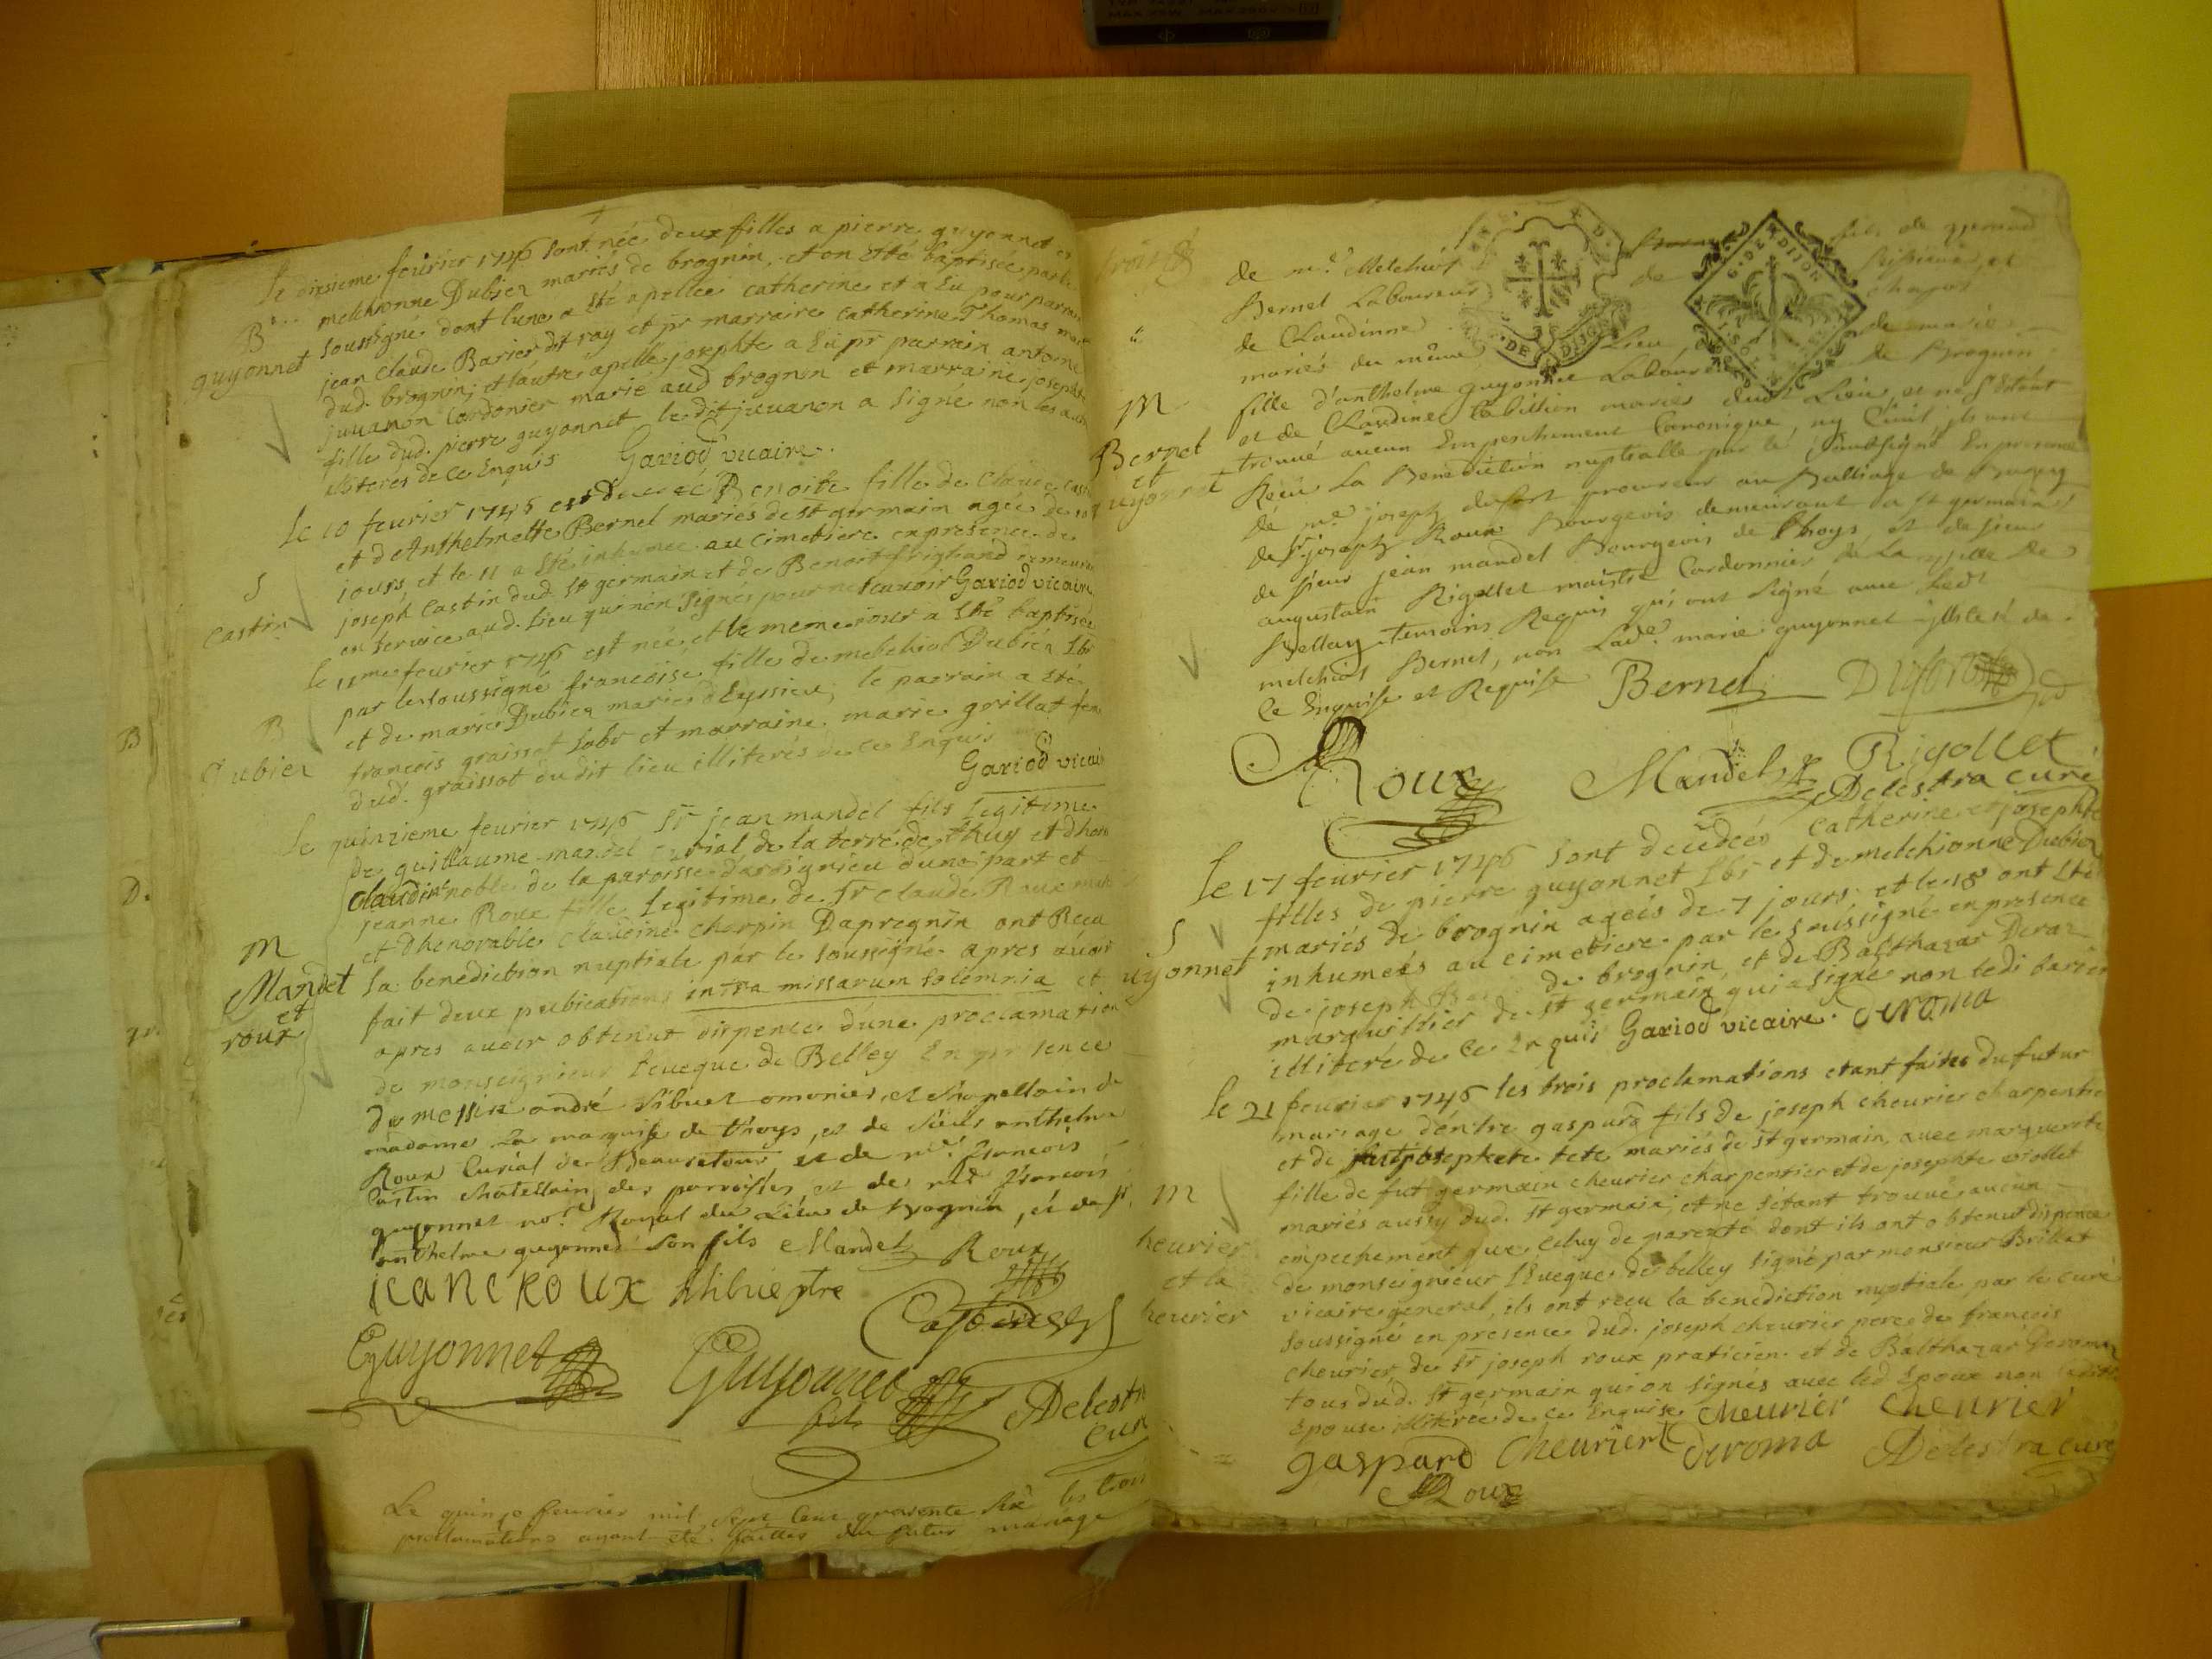 Le dixsieme feurier 1746 sont née deux filles a pierre guyonnet et
melchionne Dubiez mariés de brognin, et on etté baptisée par le
soussigné dont lune a eté apellée catherine et a eu pour parrain
jean claude Barier dit ray et pr marraine catherine Thomas
dud. brognin; et lautre apellé josephte a eu pr parrain antoine
juuanon cordonier marié aud brognin et marraine josephte
fille dud. pierre guyonnet le dit juuanon a signé non les
illiteres de ce enquis Gariod vicaire.
B
guyonnet
Le 10 feurier 1746 est decedé Benoite fille de Claude Castin
et d'Anthelmette Bernel mariés de st germain agée de
jours et le 11 a eté inhumée au cimetiere en presence de
joseph Castin dud. st germain et de Benoit frighand
en seruice aud. lieu qui nen signés pour ne scauoir Gariod vicaire
S
Castin
Le 11me feurier 1746 est née et le meme iour a eté baptisée
par le soussigné francoise fille de melchiol Dubiez lbr
et de marie Dubiez mariés dEyssieu; le parrain a eté
francois graissot labr et marraine marie grillat
dud. graissot du dit lieu illiterés de ce enquis
Gariod vicaire
B
Dubiez
Le quinzieme feurier 1746 Sr jean mandel fils legitime
de guillaume mandel curial de la terre de thuy et dhon
claudine noble de la paroisse darsignieu dune part et
jeanne Roux fille legitime de Sr claude Roux
et dhenorable claudine charpin Dapregnin ont Recu
la benediction nuptiale par le soussigné apres auoir
fait deux publications intra missarum solemnia et
apres auoir obtenut dispence dune proclamation
de monseigneur leueque de Belley En presence
de messire andré sibuet omonier, et chapellain de
madame La marquise de thoys, et de sieur anthelme
Roux Curial de Beauretour, et de mr. francois
Castin chatellain des parroisses, et de me francois
guyonnet nore Royal du Lieu de brognin, et de sr.
anthelme guyonnet son fils Mandel Roux
M
Mandel
et
roux
jeane Roux Sibue ptre
Castin
Guyonnet Guyonnet
fils Delestra
curé
Le quinze feurier mil sept cent quarente six les trois
proclamations ayant eté faittes du futur mariage
de mr. Melchiot
Bernel Laboureur de
de Claudinne
mariés du même Lieu, de marie
fille d'anthelme guyonnet Laboureur de Brognin
et de Claudine Cabillion mariés dudt Lieu, et ne s'etant
trouué aucun Empechement Canonique, ny Ciuil, ils ont
Reçu La Benediction nuptialle par le soussigné En presence
de me joseph dufort procureur au Balliage de Bugey
de sr joseph Roux Bourgeois demeurant a st germain
de sieur jean mandel Bourgeois de thoys, et de sieur
augustain Rigollet maistre Cordonnier de La ville de
Belley temoins Requis qui ont signé auec Ledt
melchiot Bernel, non Lade. marie guyonnet illiteré de
Ce Enquise et Requise Bernel Dufort
M
Bernel
et
guyonnet
Roux Mandel Rigollet
Delestra curé
Le 17 feurier 1746 sont decedées catherine et josephte
filles de pierre guyonnet lbr et de melchionne Dubiez
mariés de brognin ageés de 7 jours, et le 18 ont eté
inhumeés au cimetiere par le soussigné en presence
de joseph de brognin et de Balthazar Deroz
marguellier de st germain qui a signé non ledi barier
illiteré de ce enquis Gariod vicaire. deroma
S
guyonnet
Le 21 feurier 1746 les trois proclamations etant faites du futur
mariage déntre gaspard fils de joseph cheurier charpentier
et de josephte tete mariés de st germain, auec marguerite
fille de fut germain cheurier charpentier et de josephte viollet
mariés aussy dud. st germain; et ne setant trouué aucun
empechement que celuy de parenté dont ils ont obtenut dispence
de monseigneur lEueque de belley signé par monsieur Brillat
vicaire general, ils ont recu la benediction nuptiale par le curé
soussigné en présence dud. joseph cheurier pere de francois
cheurier, de sr joseph roux praticien et de Balthazar Deroma
tous dud. st germain qui on signés auec led Epoux non
Epouse illiterée de ce Enquise cheurier cheurier
M
cheurier
et la
cheurier
gaspard cheurier deroma Delestra curé
Roux
G. DE DIJON